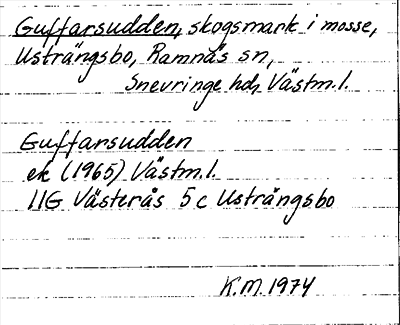 Guffarsudden, skogsmark i mosse,
Usträngsbo, Ramnäs sn,
Snevringe hd, Västm.l.
Guffarsudden
ek (1965) Västm.l.
11G Västerås 5c Usträngsbo
K.M. 1974